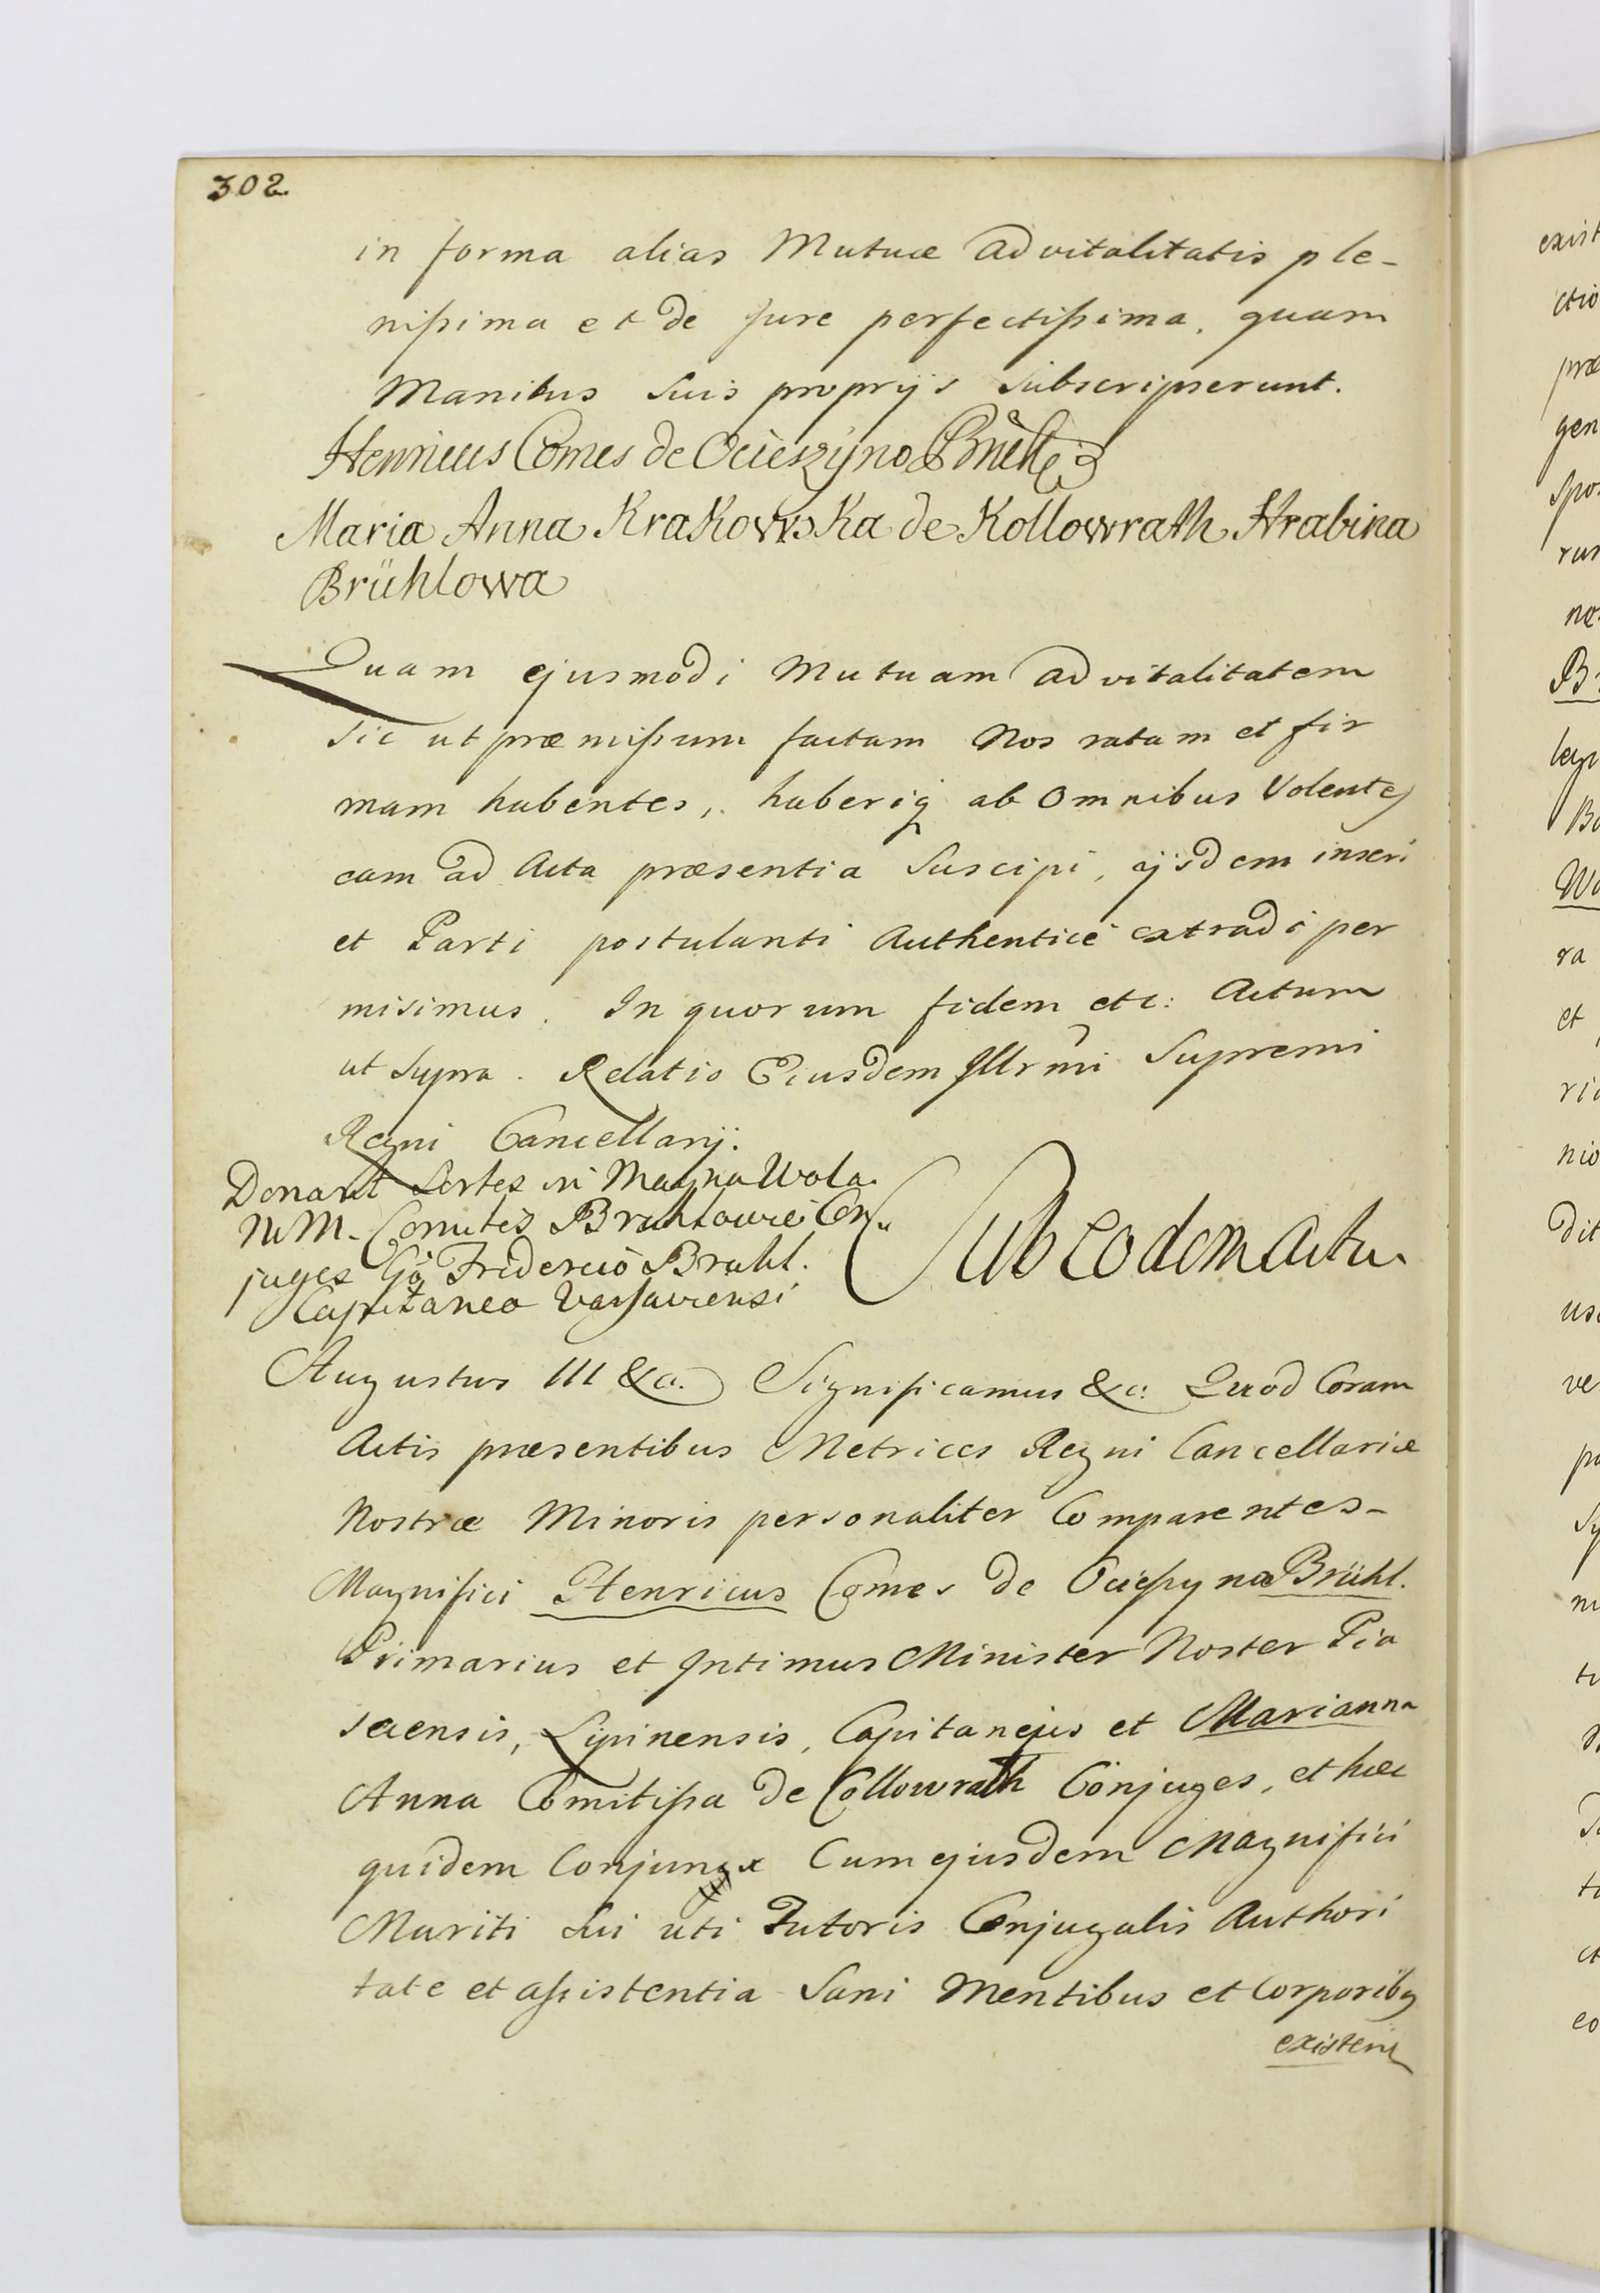 302.
in forma alias Mutuæ Advitalitatis ple-
nissima et de Jure perfectissima, quam
Manibus Suis proprijs Subscripserunt.
Henricus Comes de Ocieszyno Brühl
Maria Anna Krakowska de Kollowrath Hrabina
Brühlowa
Quam ejusmodi Mutuam Advitalitatem
Sic ut præmissum factam Nos ratam et fir
mam habentes, haberiq ab Omnibus Volentes
eam ad Acta præsentia Suscipi, ijsdem inseri
et Parti postulanti Authenticè extradi per
misimus. In quorum fidem etc: Actum
ut Supra. Relatio Ejusdem Illrmi Supremi
Regni Cancellarij.
Donant Sortes in Magna Wola
MM. Comites Bruhlowie Con
juges Gò Friderico Bruhl.
Capitaneo Varsaviensi
Sub eodem actu.
Augustus III &c. Significamus &c. Quod Coram
Actis præsentibus Metrices Regni Cancellariæ
Nostræ Minoris personaliter Comparentes-
Magnifici Henricus Comes de Ocieszyna Brühl.
Primarius et Intimus Minister Noster Pia
secensis, Lipinensis, Capitanejus et Marianna
Anna Comitissa de Collowrath Conjuges, et hæc
quidem Conjunx Cum ejusdem Magnifici
Mariti Sui uti Tutoris Conjugalis Authori
tate et assistentia Sani Mentibus et Corporibq
existen